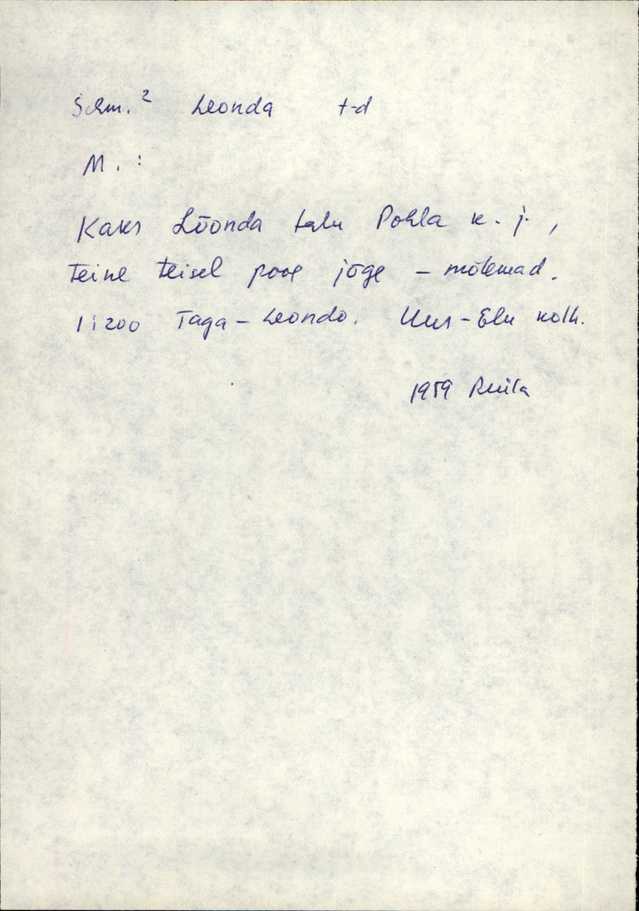 Schm.² Leonda t-d
M. :
Kaks Lõonda talu Pohla k. j.,
teine teisel pool jõge – mõlemad.
1:200 Taga-Leondo. Uus-Elu kolh.
1959 Ruila